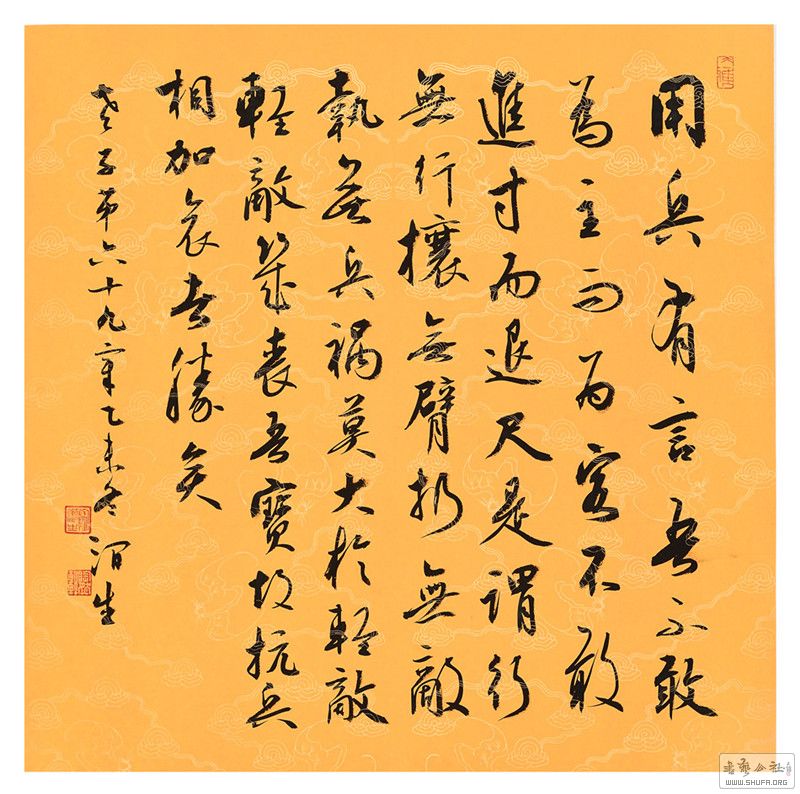 用兵有言吾不敢
為主而為客不敢
進寸而退尺是謂行
無行攘無臂扔無敵
執無兵禍莫大於輕敵
輕敵幾喪吾寶故抗兵
相加哀者勝矣
老子第六十九章乙未冬
書藝公社
WWW.SHUFA.ORG